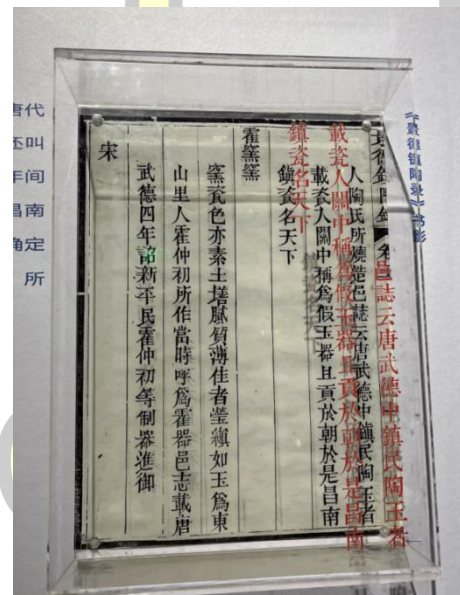 《景德镇陶录》书影
邑誌云唐武德中鎮民陶玉者
載瓷入關中稱爲假玉器且貢於朝於是昌南
鎮瓷名天下
人陶氏所燒造邑誌云唐武德中鎮民陶玉者
載瓷入關中稱爲假玉器且貢於朝於是昌南
鎮瓷名天下
霍窯窯
窯瓷色亦素土墡膩質薄佳者瑩縝如玉爲東
山里人霍仲初所作當時呼爲霍器邑志載唐
武德四年詔新平民霍仲初等制器進御
宋
唐代
还叫
年间
昌南
确定
所